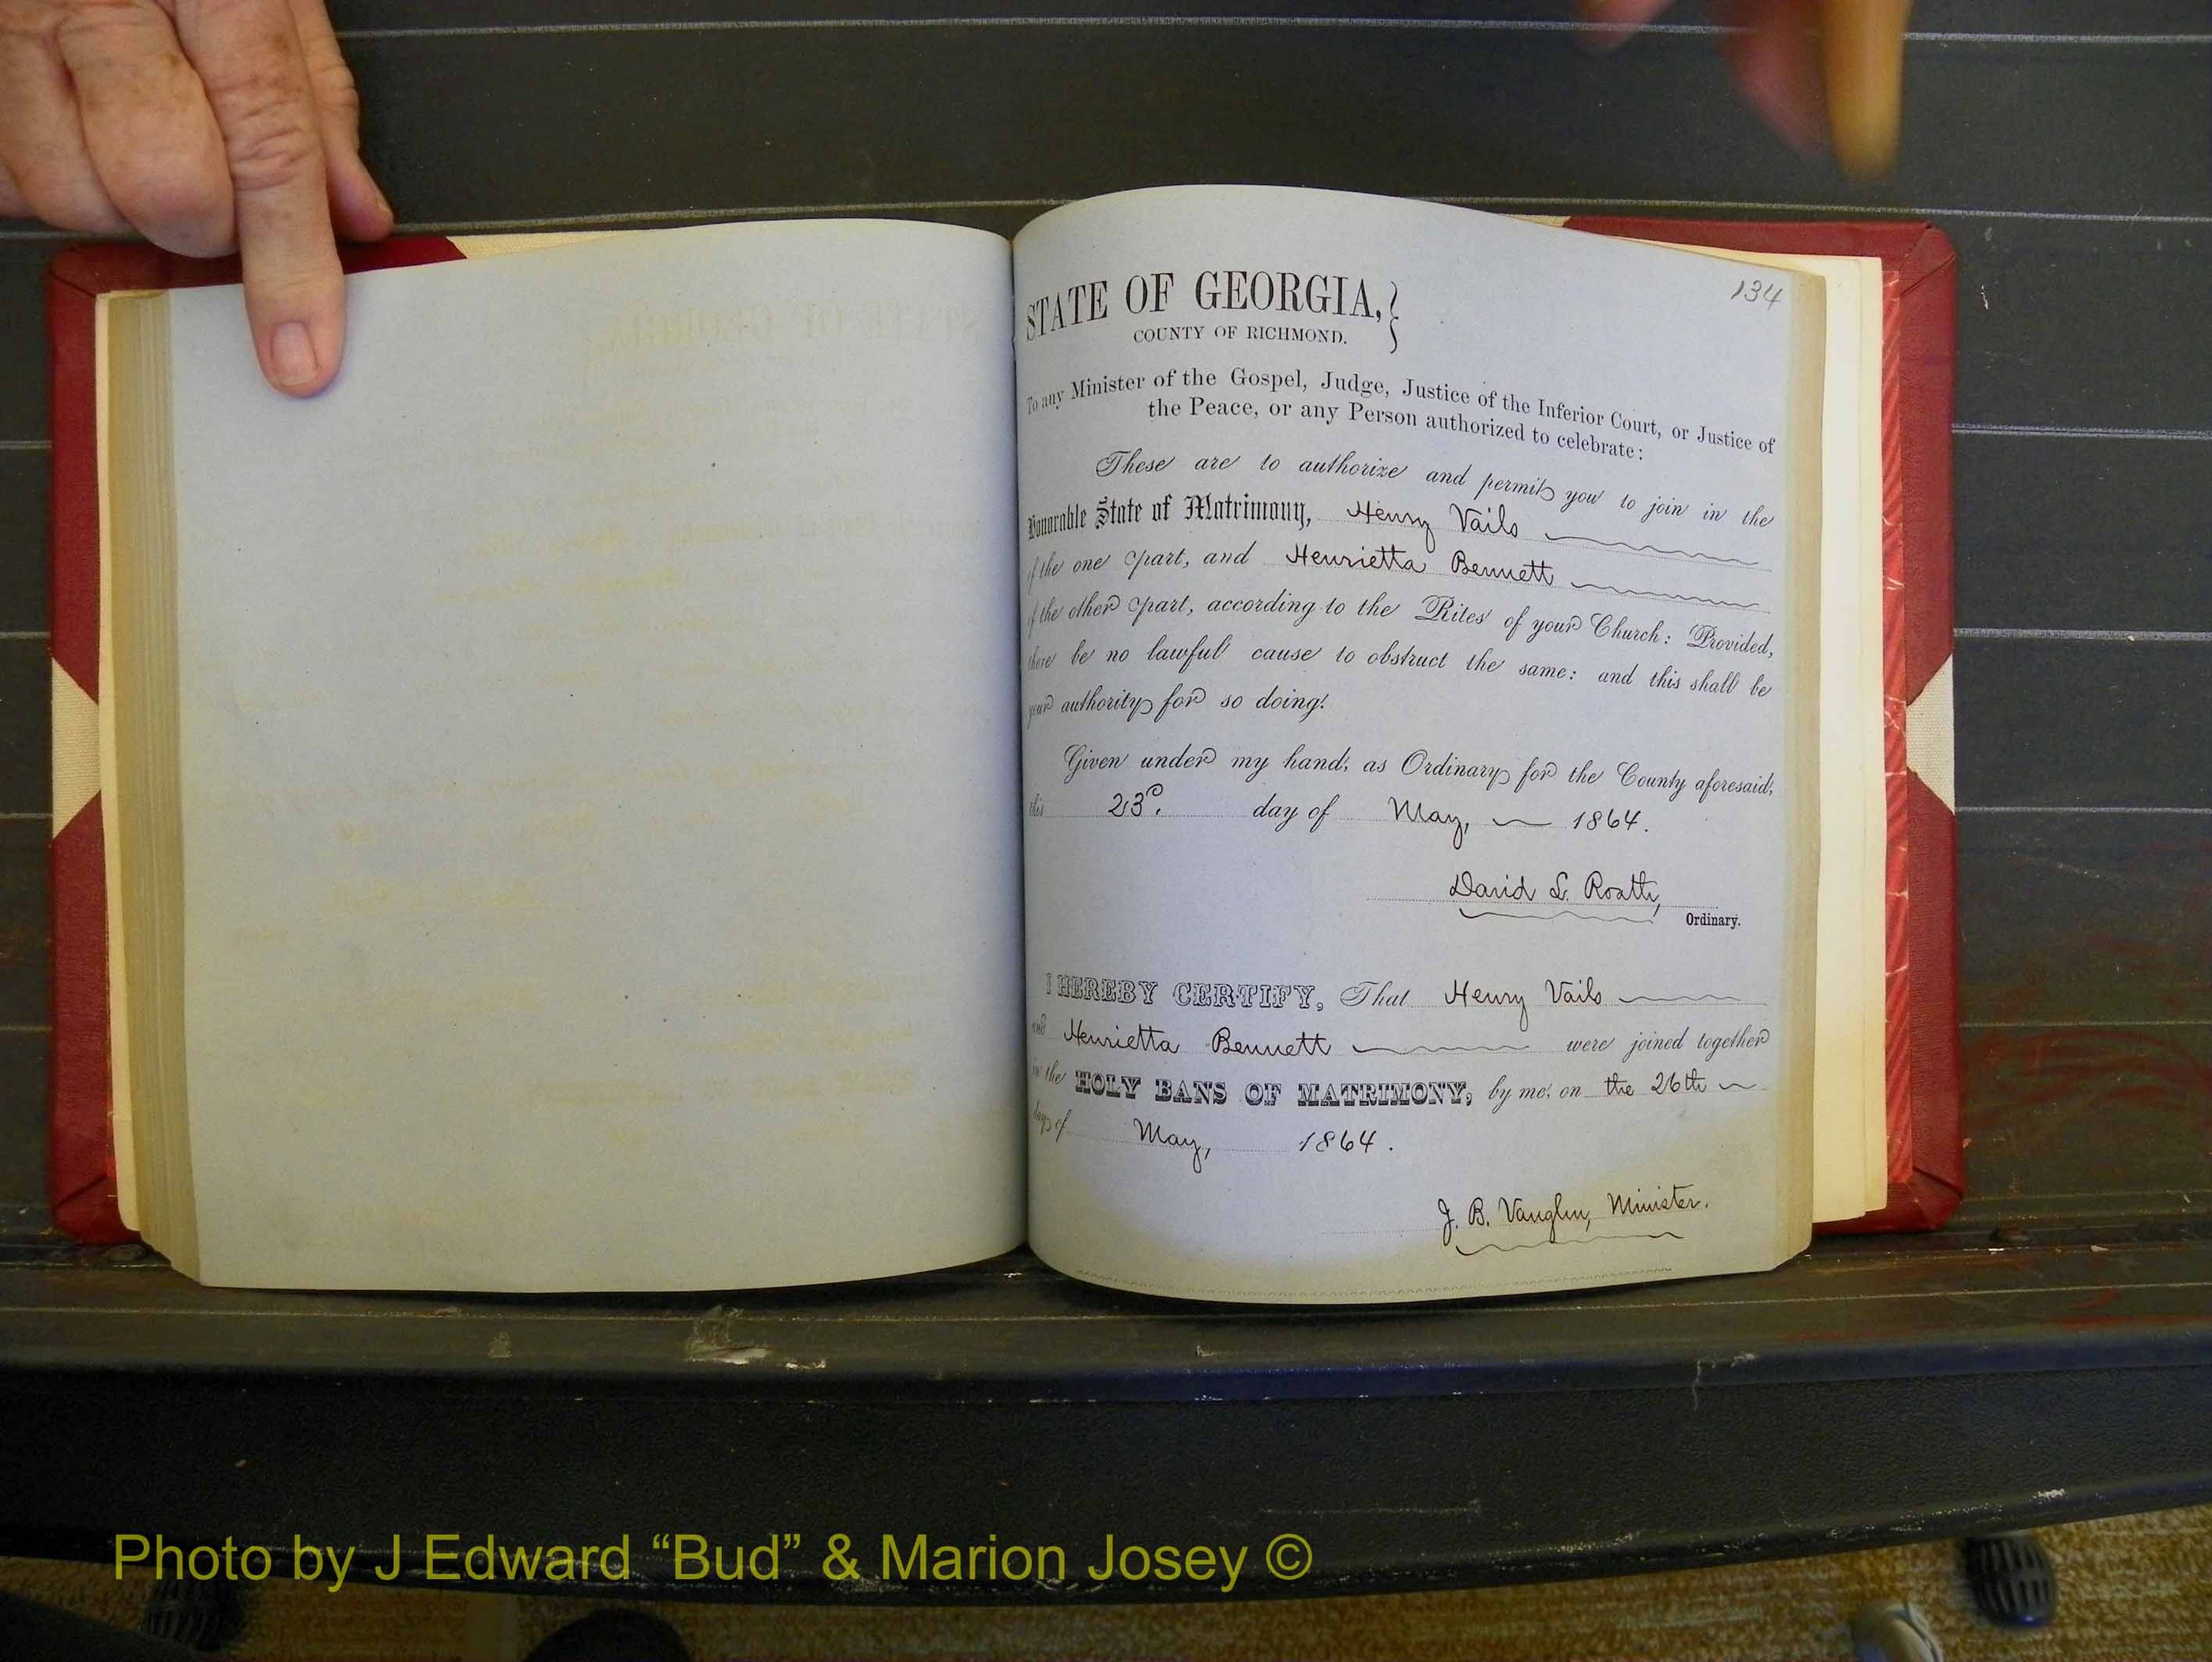 134
STATE OF GEORGIA,}
COUNTY OF RICHMOND.
To any Minister of the Gospel, Judge, Justice of the Inferior Court, or Justice of
the Peace, or any Person authorized to celebrate:
These are to authorize and permit you to join in the
Honorable State of Matrimony, Henry Vails
of the one part, and Henrietta Bennett
of the other part, according to the Rites of your Church: Provided,
there be no lawful cause to obstruct the same: and this shall be
your authority for so doing.
Given under my hand, as Ordinary for the County aforesaid,
this 23d. day of May, 1864.
David L. Roath,
Ordinary.
I HEREBY CERTIFY, That Henry Vails
and Henrietta Bennett were joined together
in the HOLY BANS OF MATRIMONY, by me, on the 26th
day of May, 1864.
J. B. Vaughn, Minister.
Photo by J Edward “Bud” & Marion Josey ©